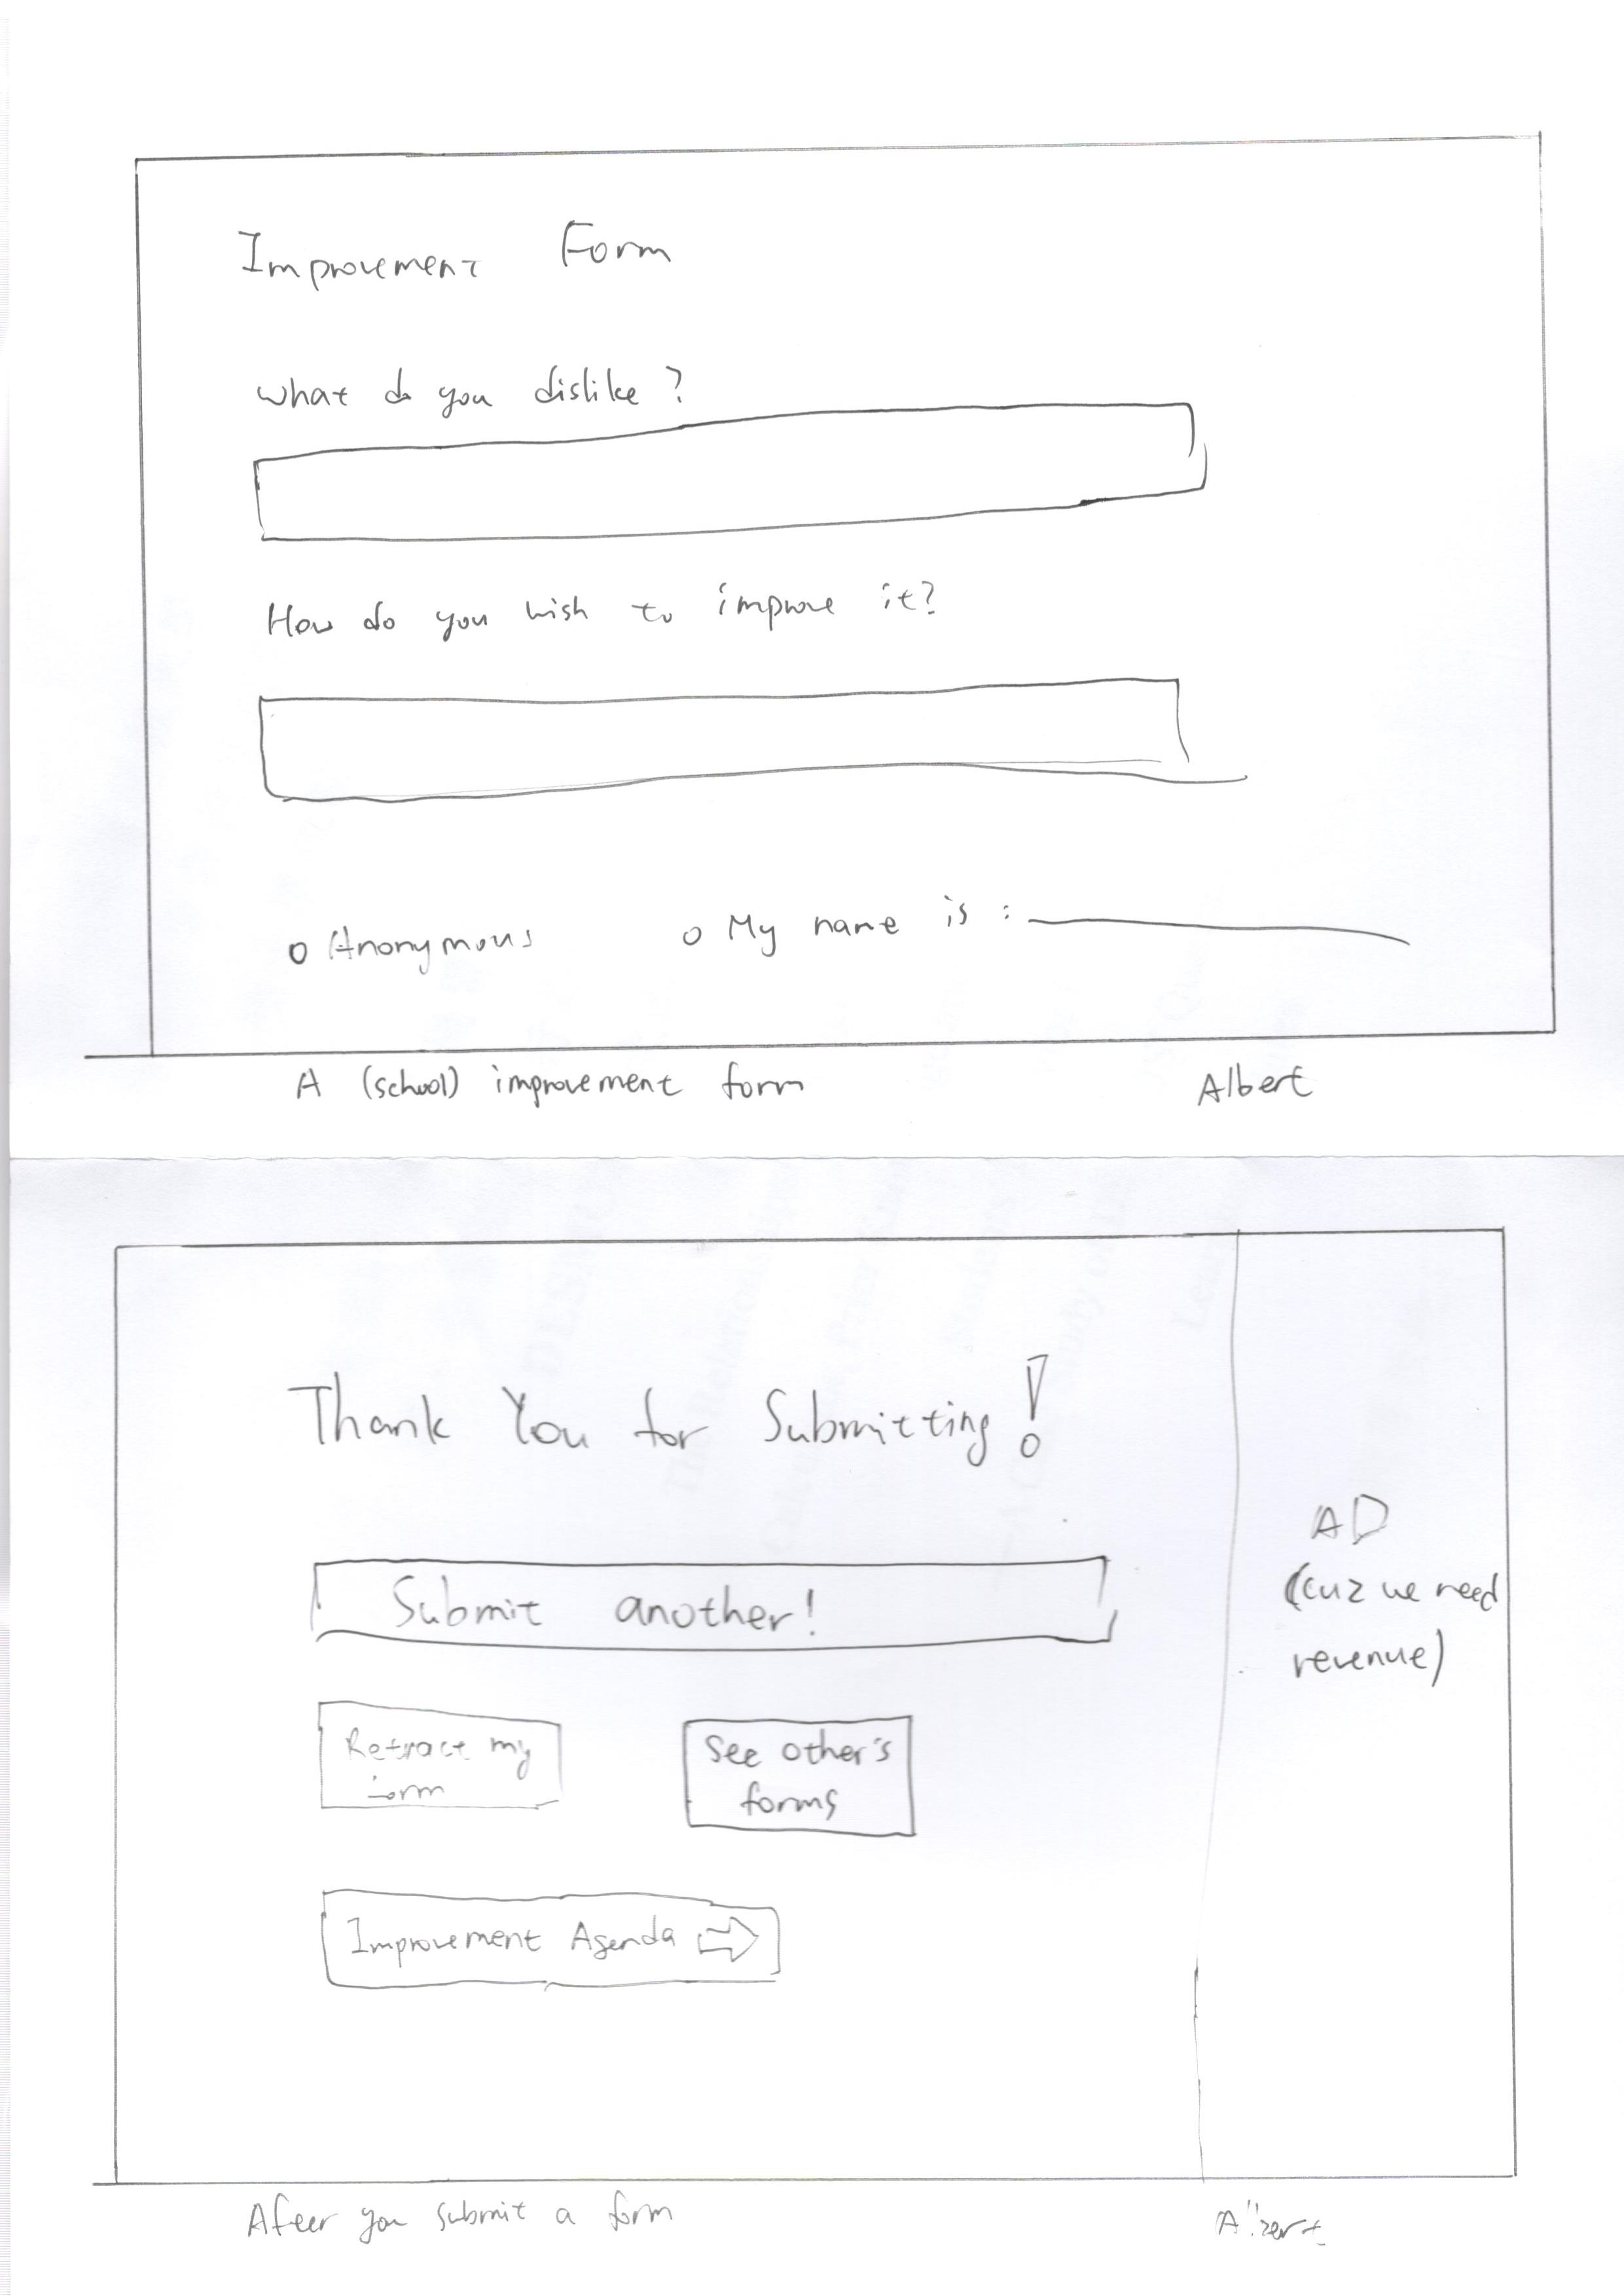 Improvement Form
What do you dislike ?
How do you wish to improve it?
Anonymous
My name is :
A (school) improvement form
Albert
Thank You for Submitting!
Submit another!
Retract my
form
See other's
forms
Improvement Agenda
AD
(cuz we need
revenue)
After you submit a form
Albert